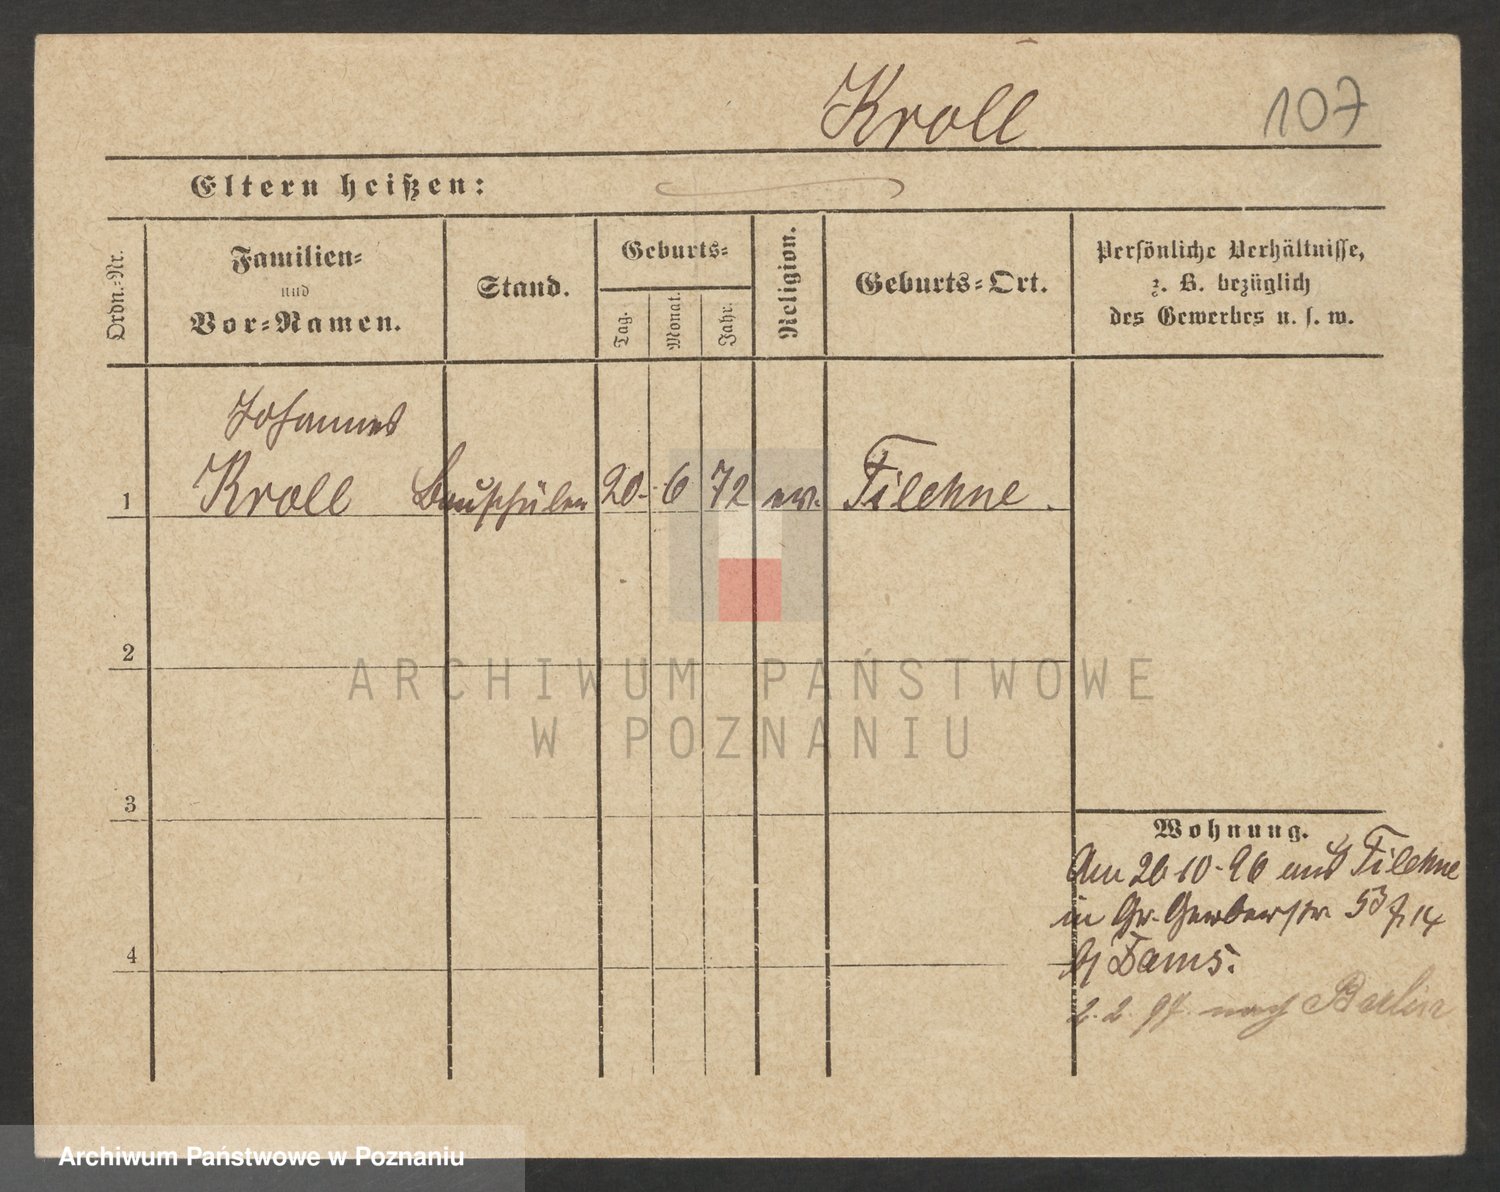 Kroll
107
Eltern heißen:
Ordn.-Nr.
Familien-
und
Vor-Namen.
Stand.
Geburts-
Tag.
Monat.
Jahr.
Religion.
Geburts-Ort.
Persönliche Verhältnisse,
z. B. bezüglich
des Gewerbes u. s. w.
Johannes
1 Kroll Bauschüler 20. 6 72 ev. Filehne.
2
3
4
Wohnung.
Am 26·10·96 aus Filehne
in Gr. Gerberstr. 53
b/ Dams.
2. 2. 97. nach Berlin
ARCHIWUM PAŃSTWOWE
W POZNANIU
Archiwum Państwowe w Poznaniu